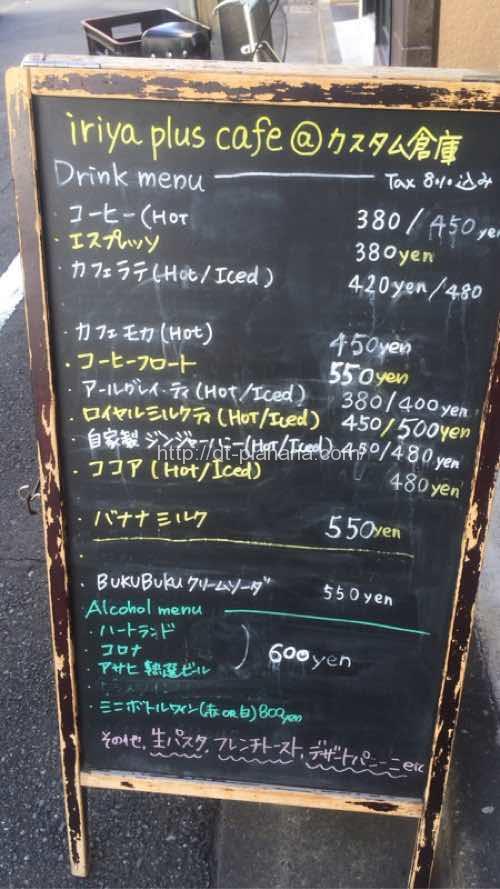 iriya plus cafe @ カスタム倉庫
Drink menu Tax 8% 込み
・コーヒー(HOT 380/450yen
・エスプレッソ 380yen
・カフェラテ(Hot/Iced) 420yen/480
・カフェモカ(Hot) 450yen
・コーヒーフロート 550yen
・アールグレイ・ティ(HOT/Iced) 380/400yen
・ロイヤルミルクティ(HOT/Iced) 450/500yen
・自家製ジンジャーハニー(Hot/Iced) 450/480yen
・ココア(Hot/Iced) 480yen
http://dt-planana.com/
・バナナミルク 550yen
・BUKUBUKUクリームソーダ 550yen
Alcohol menu
・ハートランド
・コロナ 600yen
・アサヒ熟選ビール
・ミニボトルワイン(赤OR白)800yen
その他、生パスタ、フレンチトースト、デザートパニーニetc